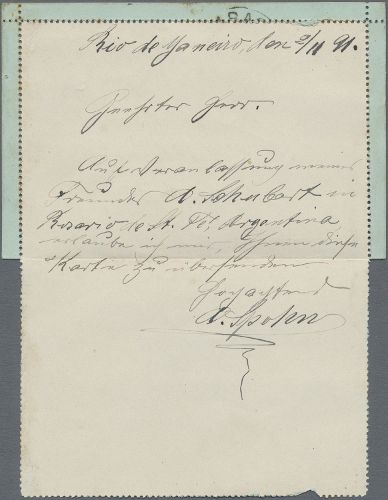 Rio de Janeiro, den 2/11 91.
Geehrter Herr.
Auf Veranlassung meines
Freundes A. Schubart in
Rosario de St. Fé, Argentina
erlaube ich mir, Ihnen diese
Karte zu übersenden
Hochachtend
A. Spohn